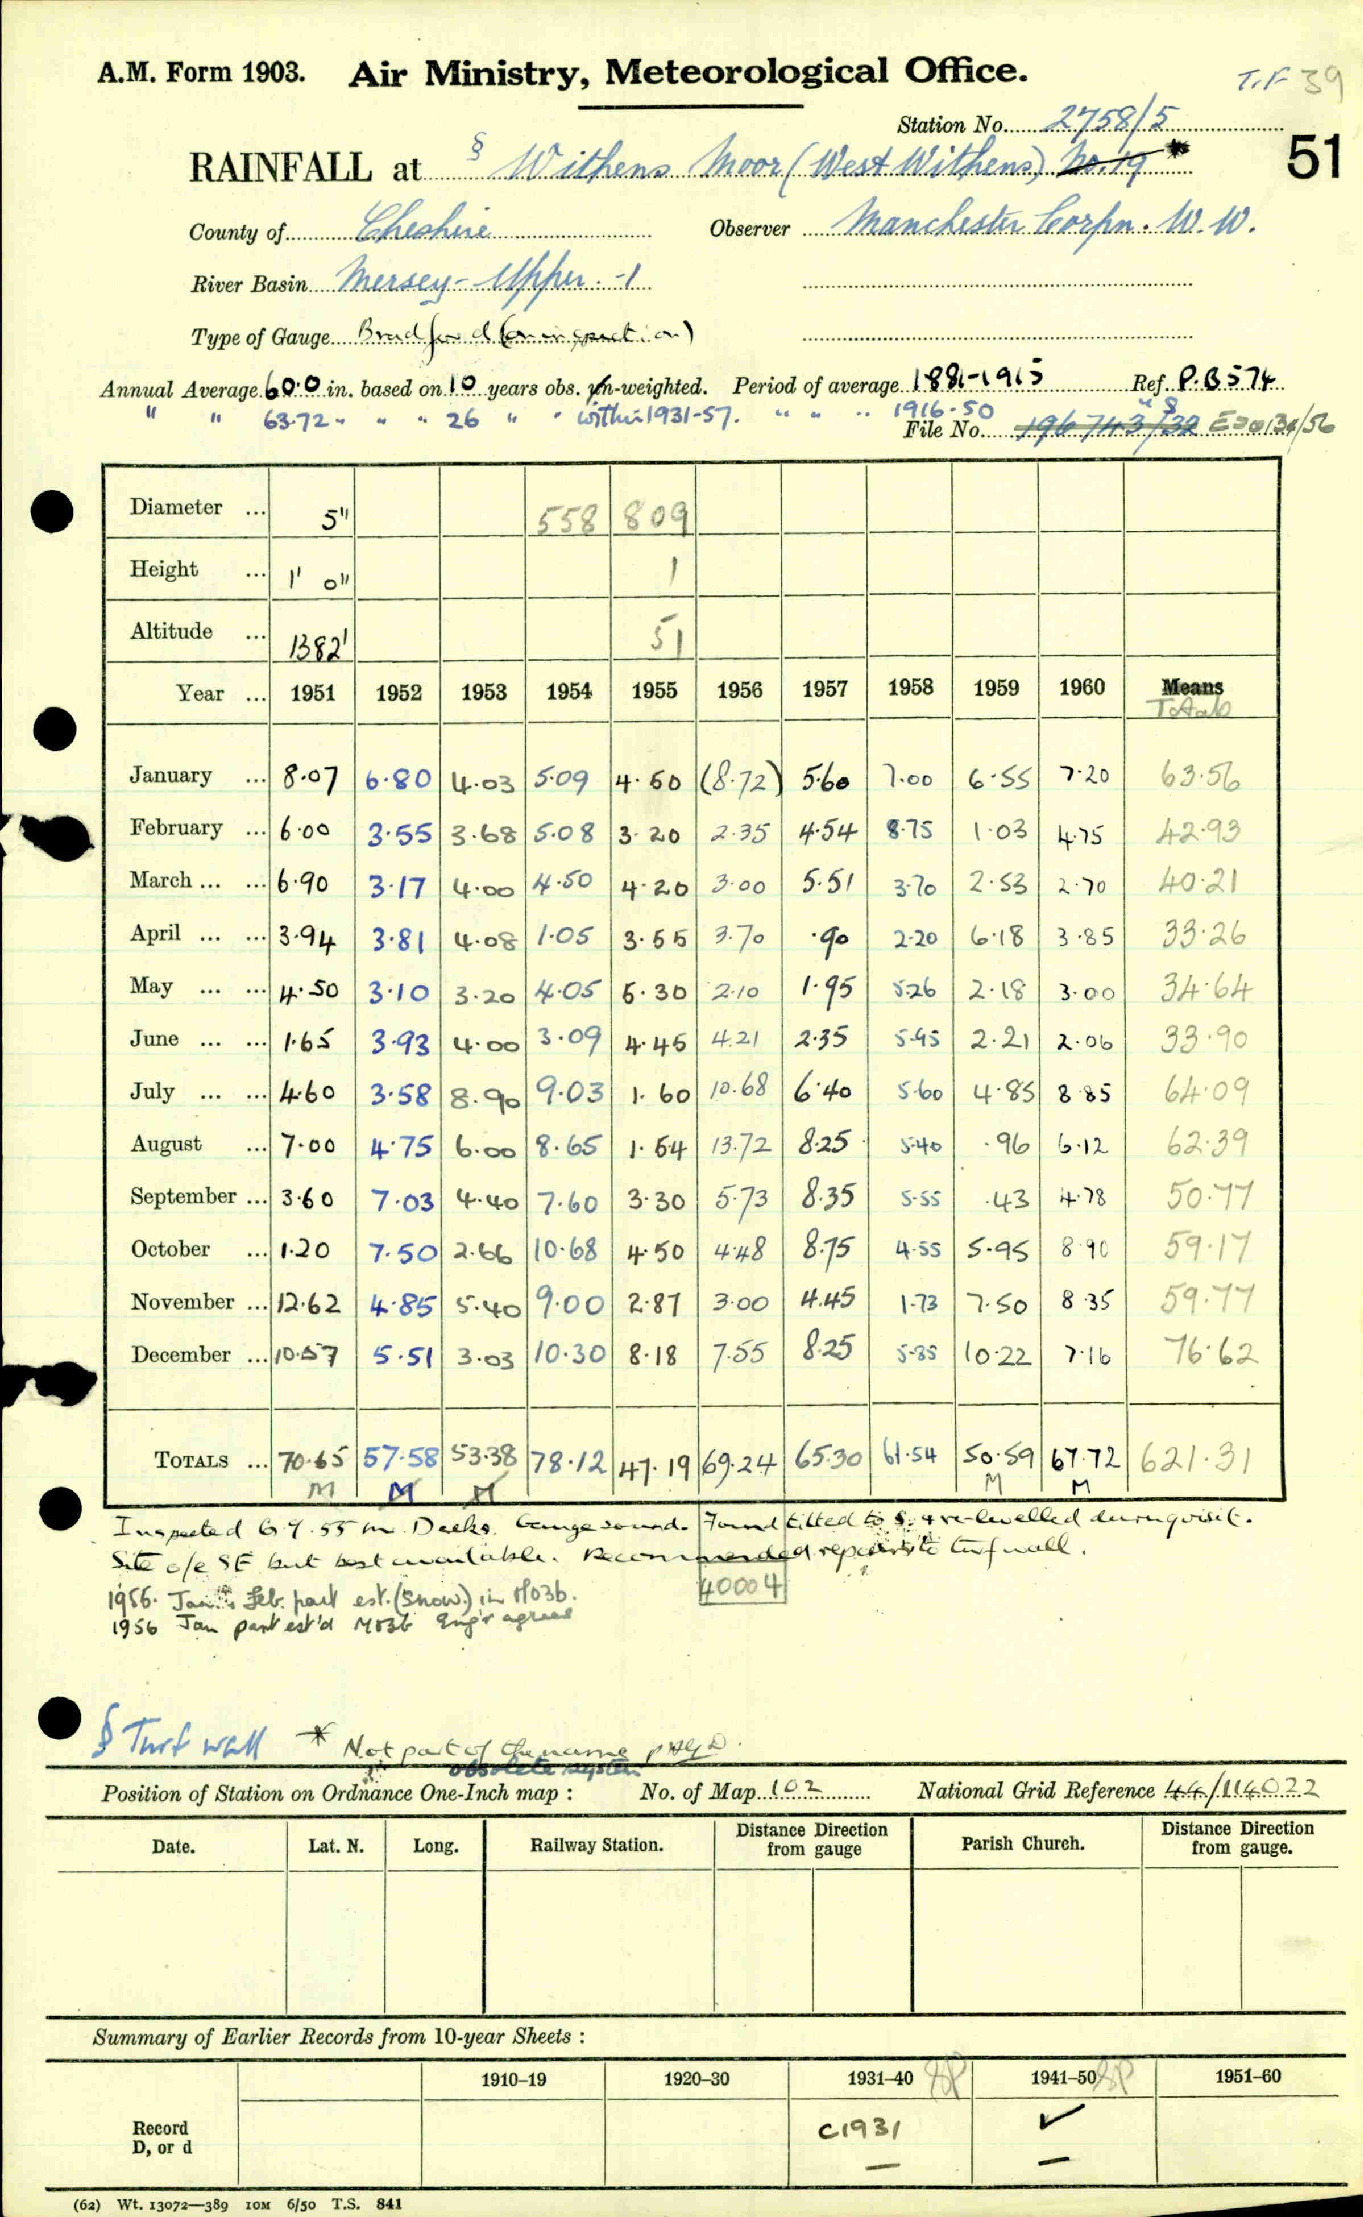 A.M. Form 1903. Air Ministry, Meteorological Office. T.F 39
Station No. 2758/5
RAINFALL at § Withens Moor (West Withens) No. 19 * 51
County of Cheshire Observer Manchester Corpn. W.W.
River Basin Mersey-Upper-1
Type of Gauge Bradford (on inspection)
Annual Average 60.0 in. based on 10 years obs. un-weighted. Period of average 1881-1915 Ref. P.B574
" " 63.72 " " " 26 " " within 1931-57. " " " 1916-50
File No. 196743/32
Diameter ... 5" 558 809
Height ... 1' 0" 1
Altitude ... 1382' 51
Year ... 1951 1952 1953 1954 1955 1956 1957 1958 1959 1960 Means
Totals
January ... 8.07 6.80 4.03 5.09 4.50 (8.72) 5.60 7.00 6.55 7.20 63.56
February ... 6.00 3.55 3.68 5.08 3.20 2.35 4.54 8.75 1.03 4.75 42.93
March ... ... 6.90 3.17 4.00 4.50 4.20 3.00 5.51 3.70 2.53 2.70 40.21
April ... ... 3.94 3.81 4.08 1.05 3.55 3.70 .90 2.20 6.18 3.85 33.26
May ... ... 4.50 3.10 3.20 4.05 5.30 2.10 1.95 5.26 2.18 3.00 34.64
June ... ... 1.65 3.93 4.00 3.09 4.45 4.21 2.35 5.95 2.21 2.06 33.90
July ... ... 4.60 3.58 8.90 9.03 1.60 10.68 6.40 5.60 4.85 8.85 64.09
August ... 7.00 4.75 6.00 8.65 1.54 13.72 8.25 5.40 .96 6.12 62.39
September ... 3.60 7.03 4.40 7.60 3.30 5.73 8.35 5.55 .43 4.78 50.77
October ... 1.20 7.50 2.66 10.68 4.50 4.48 8.75 4.55 5.95 8.90 59.17
November ... 12.62 4.85 5.40 9.00 2.87 3.00 4.45 1.73 7.50 8.35 59.77
December ... 10.57 5.51 3.03 10.30 8.18 7.55 8.25 5.85 10.22 7.16 76.62
TOTALS ... 70.65 57.58 53.38 78.12 47.19 69.24 65.30 61.54 50.59 67.72 621.31
M M M M M
Inspected 6.9.55 Mr. Deeks. Gauge sound. Found tilted to S. & re-levelled during visit.
Site o/e SE but best available. Recommended repairs to turf wall.
40004
1956. Jan & Feb. part est. (Snow) in M03b.
1956 Jan part est'd M03b Eng'r agrees
§ Turf wall * Not part of the name
obsolete system
Position of Station on Ordnance One-Inch map : No. of Map 102 National Grid Reference 44/114022
Date. Lat. N. Long. Railway Station. Distance Direction from gauge Parish Church. Distance Direction from gauge.
Summary of Earlier Records from 10-year Sheets :
1910–19 1920–30 1931–40 SP 1941–50 SP 1951–60
Record c1931 ✓
D, or d — —
(62) Wt. 13072—389 10M 6/50 T.S. 841